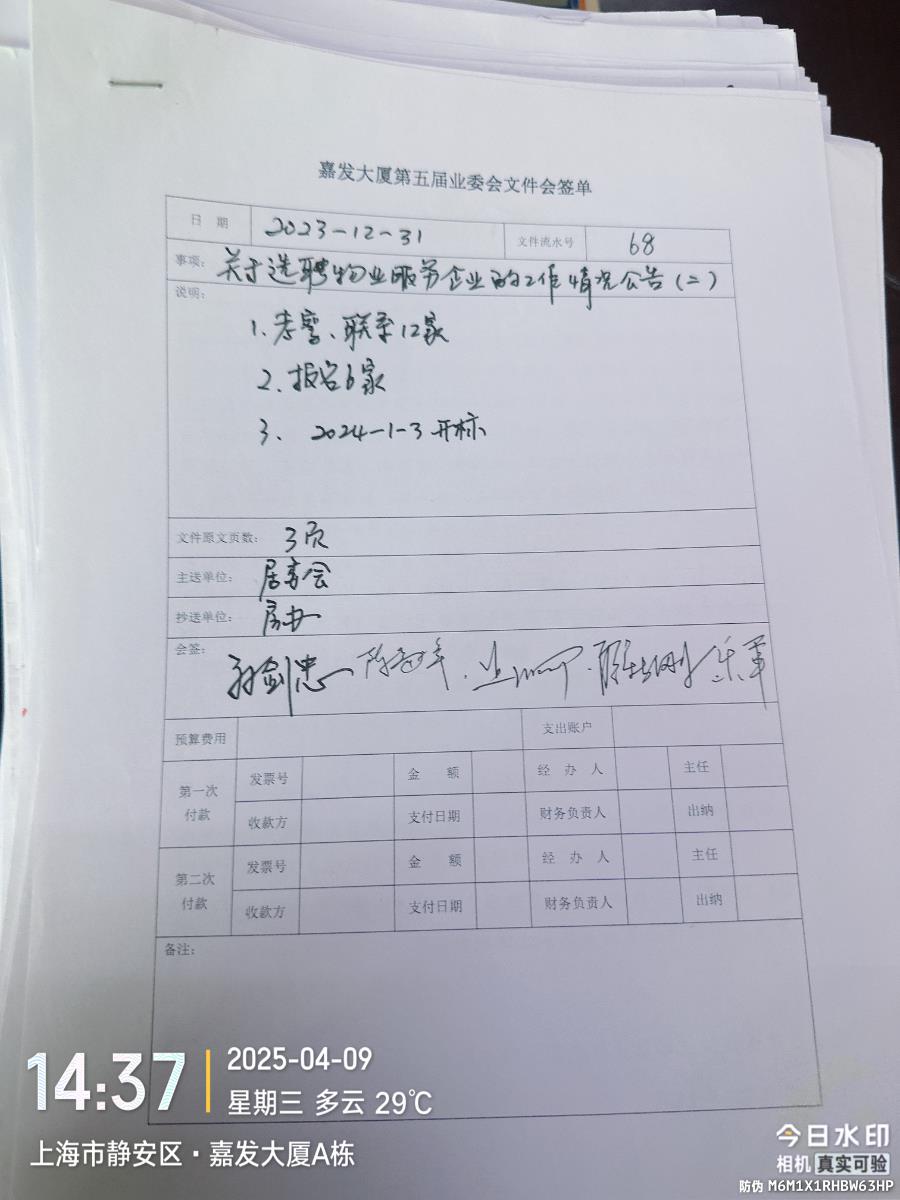 嘉发大厦第五届业委会文件会签单
日 期 2023-12-31 文件流水号 68
事项: 关于选聘物业服务企业的工作情况公告(二)
说明:
1. 考察、联系12家
2. 报名6家
3. 2024-1-3 开标
文件原文页数: 3页
主送单位: 居委会
抄送单位: 房办
会签: 孙剑忠
预算费用 支出账户
第一次付款 发票号 金 额 经 办 人 主任
收款方 支付日期 财务负责人 出纳
第二次付款 发票号 金 额 经 办 人 主任
收款方 支付日期 财务负责人 出纳
备注:
14:37 2025-04-09
星期三 多云 29℃
上海市静安区·嘉发大厦A栋
今日水印
相机 真实可验
防伪 M6M1X1RHBW63HP